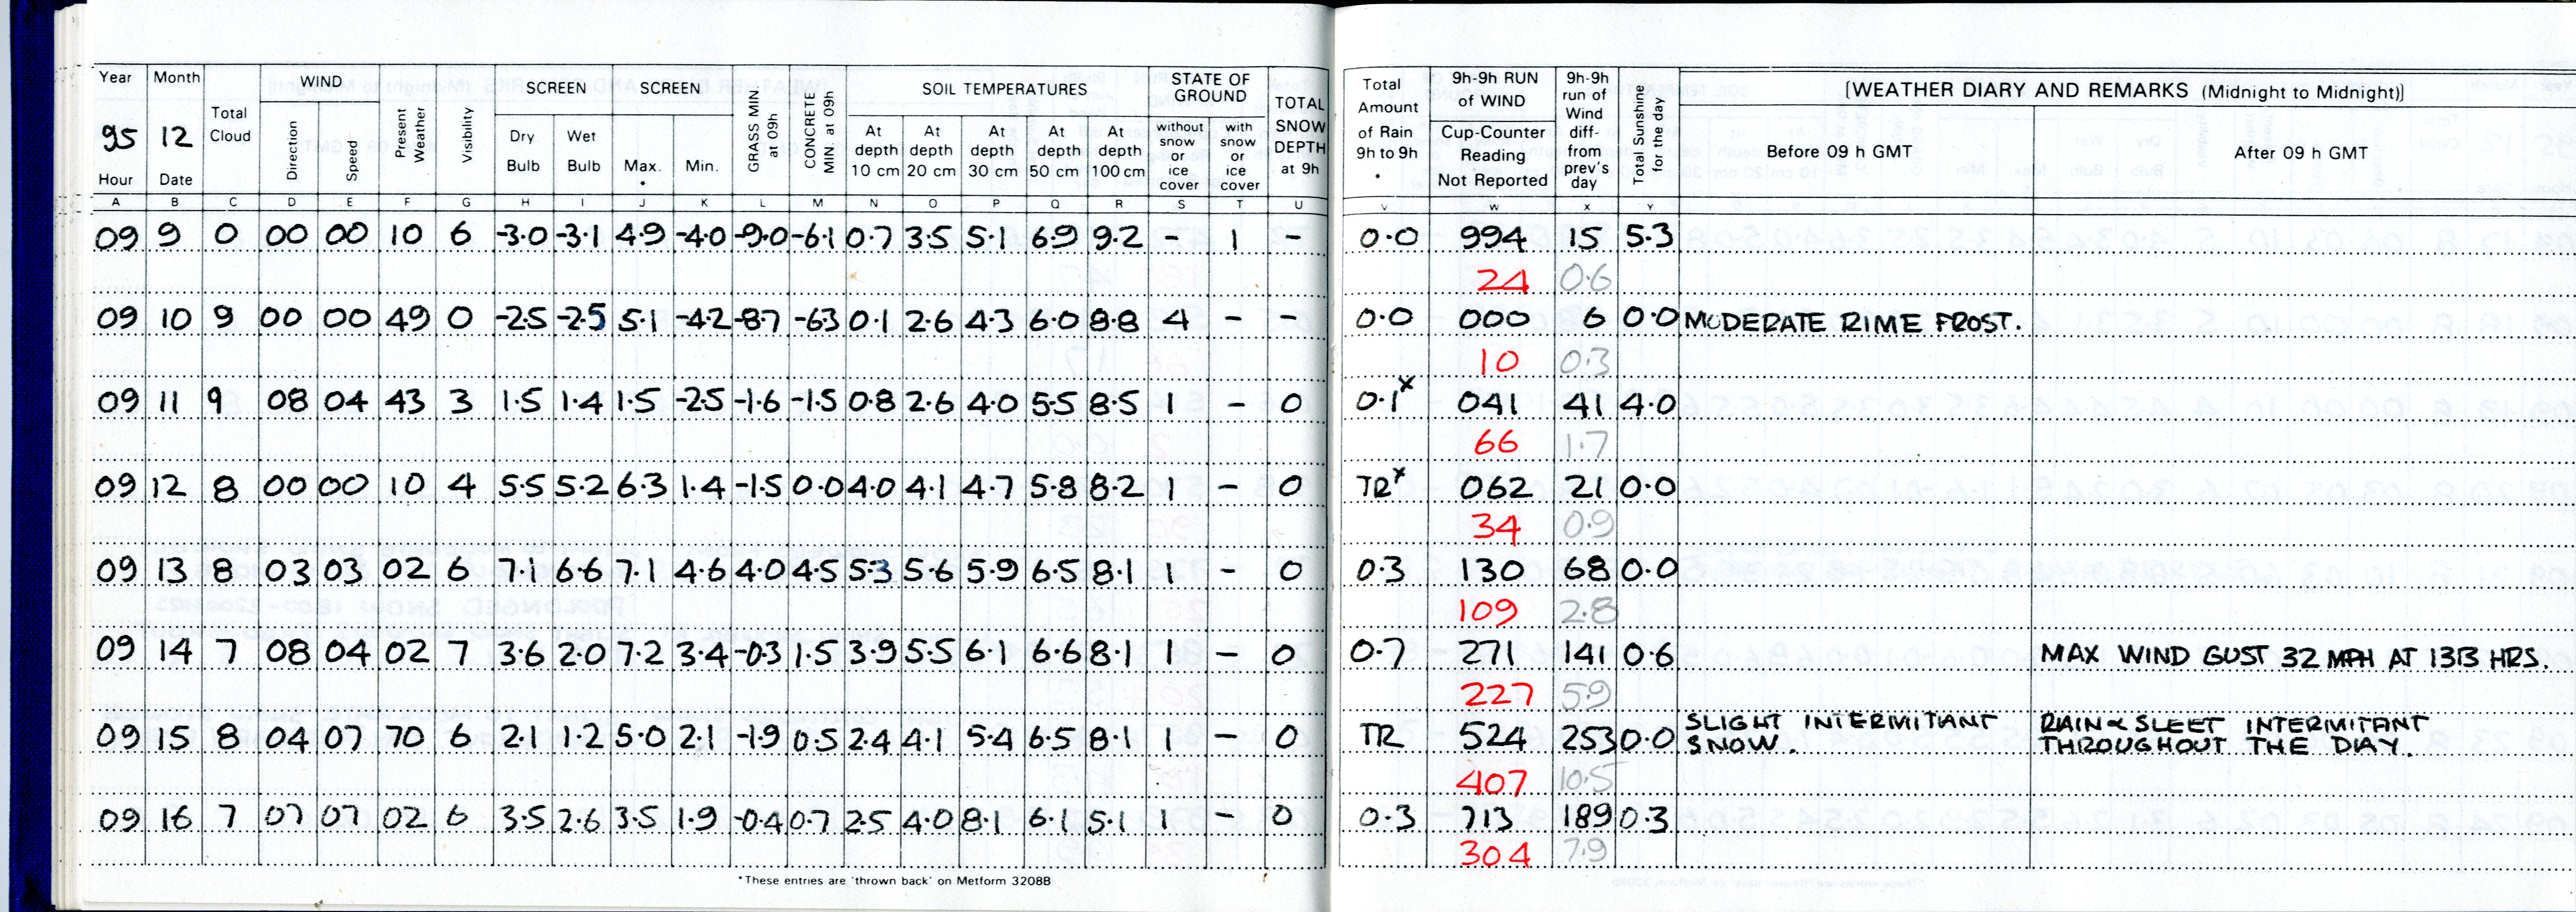 Year Month WIND SCREEN SCREEN SOIL TEMPERATURES STATE OF GROUND Total Amount of Rain 9h to 9h 9h-9h RUN of WIND 9h-9h run of Wind diff-from prev's day Total Sunshine for the day [WEATHER DIARY AND REMARKS (Midnight to Midnight)]
95 12 Total Cloud Direction Speed Present Weather Visibility Dry Bulb Wet Bulb Max. Min. GRASS MIN at 09h CONCRETE MIN at 09h At depth 10 cm At depth 20 cm At depth 30 cm At depth 50 cm At depth 100 cm without snow or ice cover with snow or ice cover TOTAL SNOW DEPTH at 9h Cup-Counter Reading Not Reported Before 09 h GMT After 09 h GMT
Hour Date • •
A B C D E F G H I J K L M N O P Q R S T U V W X Y
09 9 0 00 00 10 6 -3.0 -3.1 4.9 -4.0 -9.0 -6.1 0.7 3.5 5.1 6.9 9.2 - 1 - 0.0 994 15 5.3
24 0.6
09 10 9 00 00 49 0 -2.5 -2.5 5.1 -4.2 -8.7 -6.3 0.1 2.6 4.3 6.0 8.8 4 - - 0.0 000 6 0.0 MODERATE RIME FROST.
10 0.3
09 11 9 08 04 43 3 1.5 1.4 1.5 -2.5 -1.6 -1.5 0.8 2.6 4.0 5.5 8.5 1 - 0 0.1x 041 41 4.0
66 1.7
09 12 8 00 00 10 4 5.5 5.2 6.3 1.4 -1.5 0.0 4.0 4.1 4.7 5.8 8.2 1 - 0 TRx 062 21 0.0
34 0.9
09 13 8 03 03 02 6 7.1 6.6 7.1 4.6 4.0 4.5 5.3 5.6 5.9 6.5 8.1 1 - 0 0.3 130 68 0.0
109 2.8
09 14 7 08 04 02 7 3.6 2.0 7.2 3.4 -0.3 1.5 3.9 5.5 6.1 6.6 8.1 1 - 0 0.7 271 141 0.6 MAX WIND GUST 32 MPH AT 1313 HRS.
227 5.9
09 15 8 04 07 70 6 2.1 1.2 5.0 2.1 -1.9 0.5 2.4 4.1 5.4 6.5 8.1 1 - 0 TR 524 253 0.0 SLIGHT INTERMITIANT SNOW. RAIN & SLEET INTERMITANT THROUGHOUT THE DIAY.
407 10.5
09 16 7 07 07 02 6 3.5 2.6 3.5 1.9 -0.4 0.7 2.5 4.0 8.1 6.1 5.1 1 - 0 0.3 713 189 0.3
304 7.9
•These entries are 'thrown back' on Metform 3208B